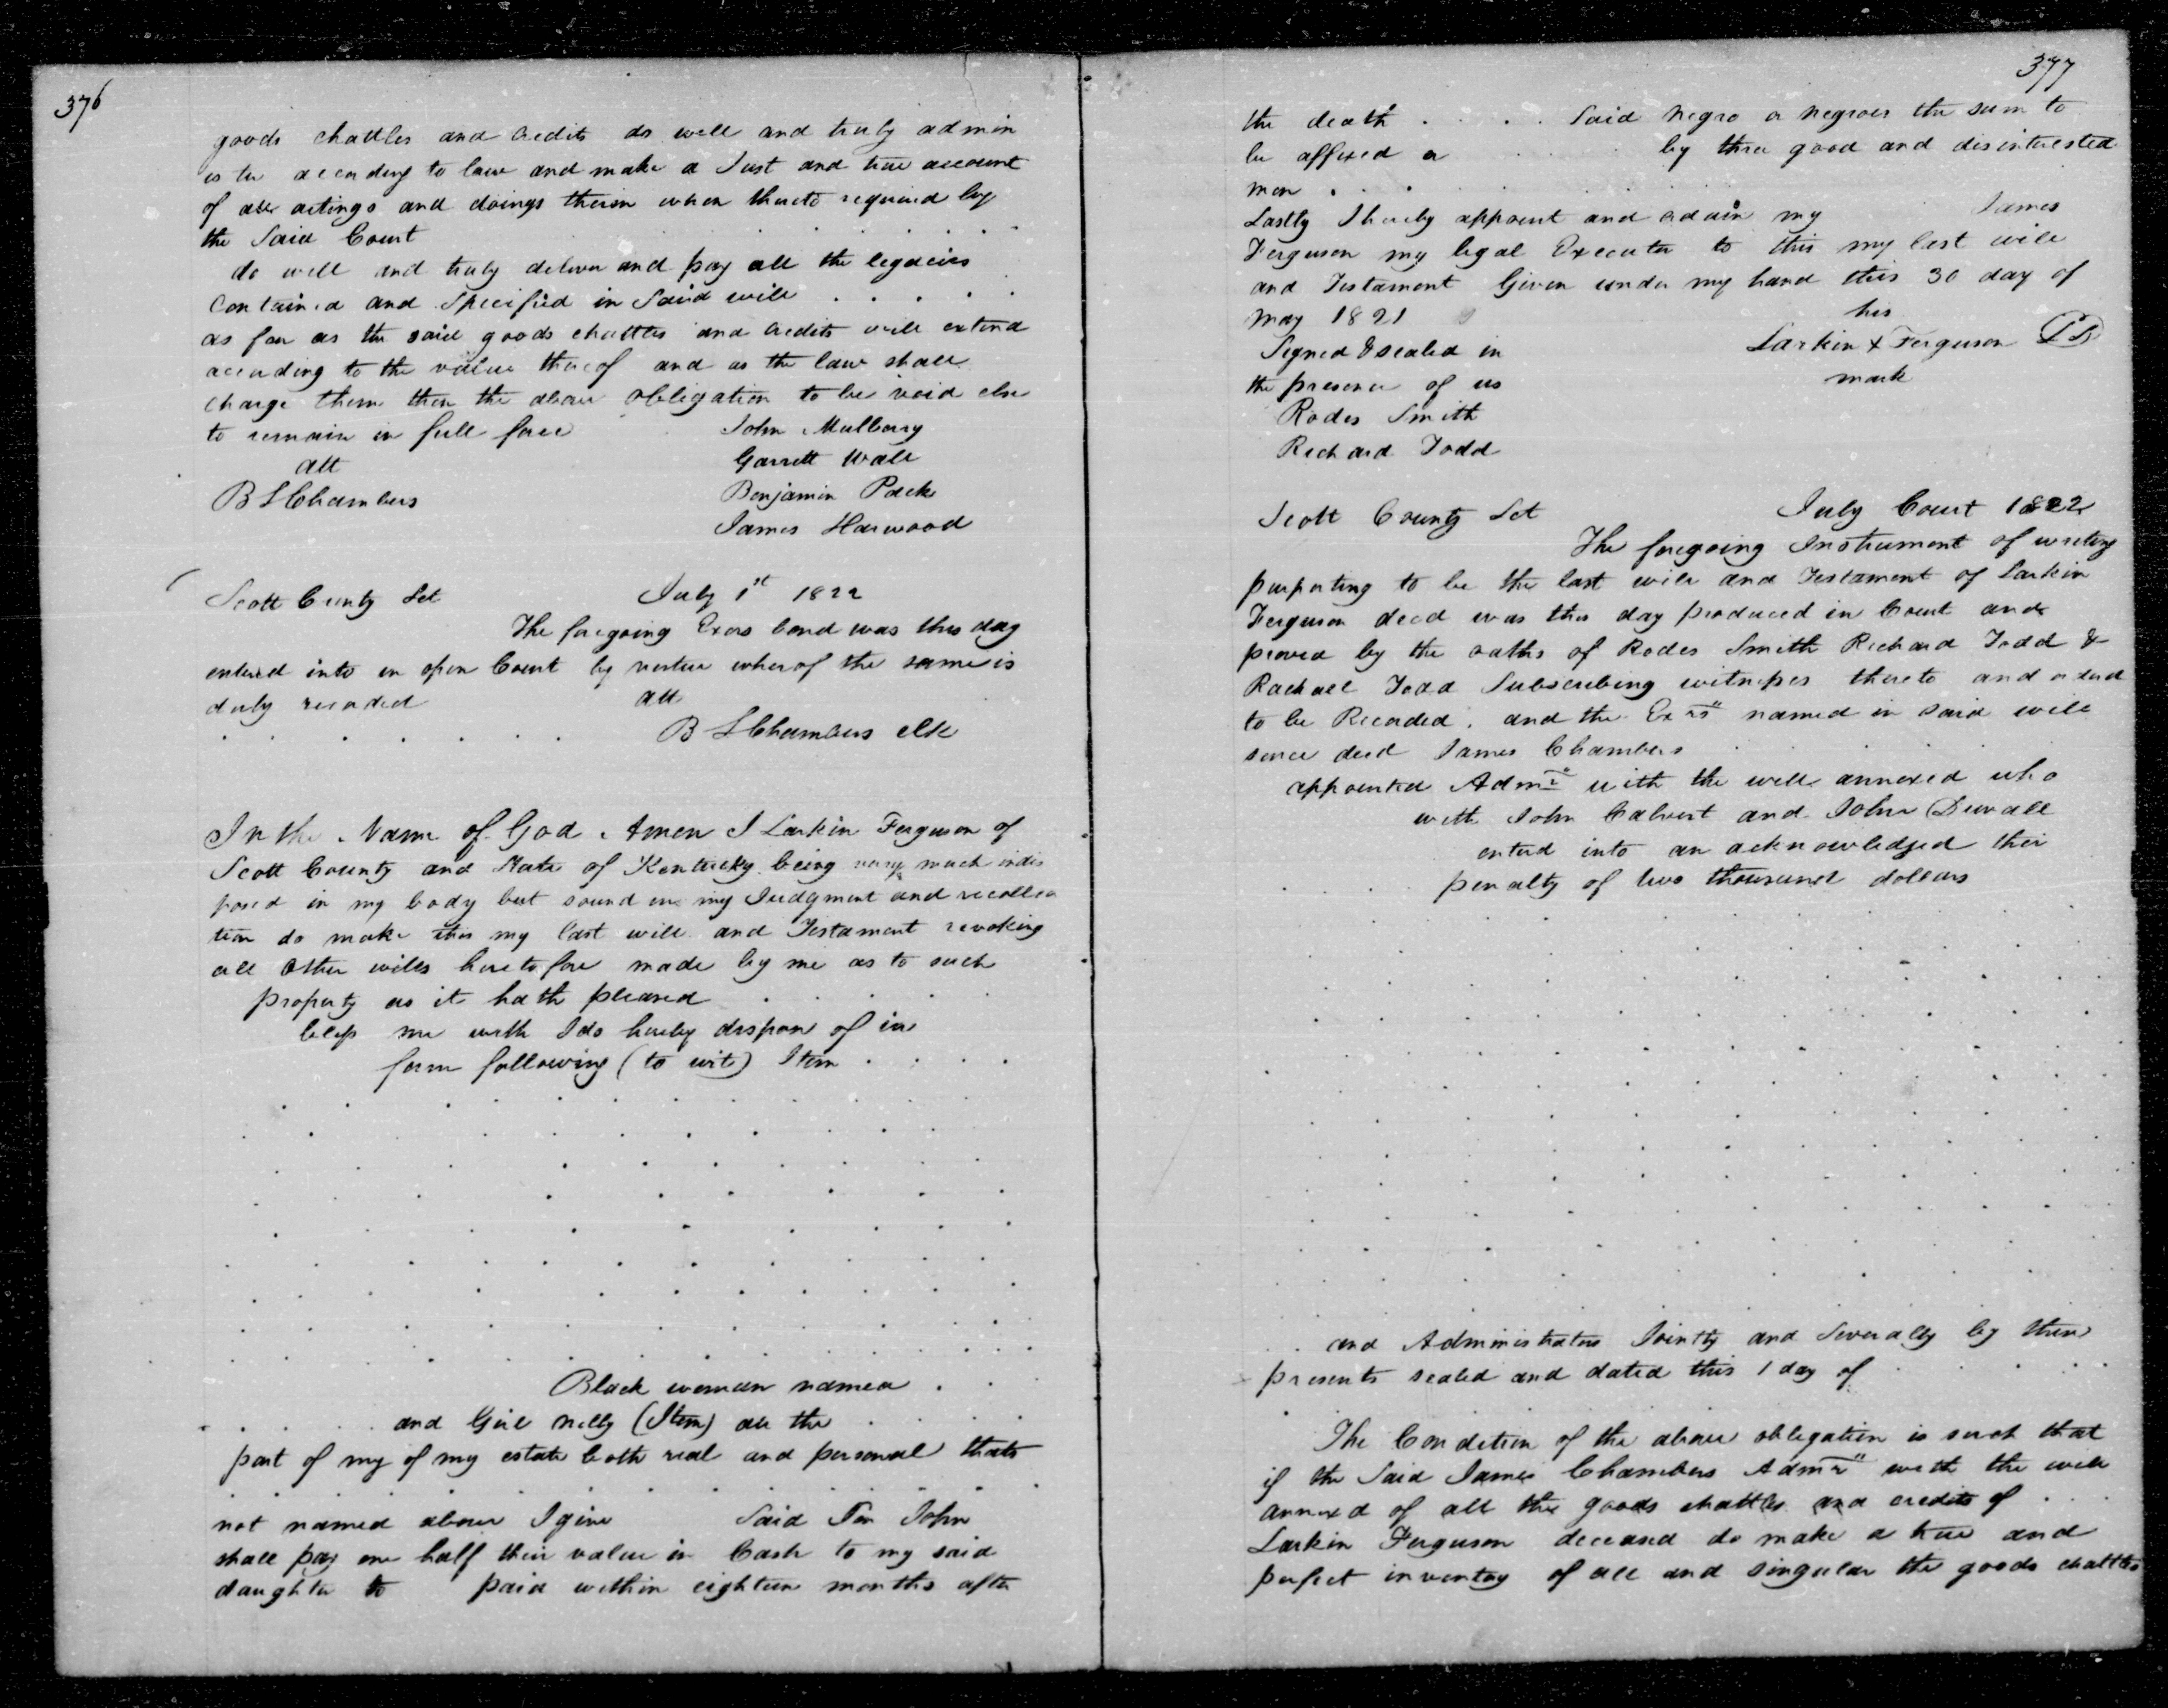 376
goods chattles and credits do well and truly admin
is ter according to law and make a Just and true account
of all actings and doings therein when thereto required by
the Said Court . . . . . . .
do well and truly deliver and pay all the legacies
Contained and Specified in Said will . . . . .
as far as the said goods chattles and credits will extend
according to the value thereof and as the law shall
charge them then the above obligation to be void else
to remain in full force John Mulberry
att Garrett Wall
B S Chambers Benjamin Pack
James Harwood
Scott County Sct July 1st 1822
The foregoing Exors bond was this day
entered into in open Court by vertue wherof the same is
duly recorded att
. . . . . . . B S Chambers clk
In the Name of God Amen I Larkin Ferguson of
Scott County and State of Kentucky being very much indis
posed in my body but sound in my Judgment and recollec
tion do make this my last will and Testament revoking
all other wills heretofore made by me as to such
property as it hath pleased . . . . .
bless me with I do hereby dispose of in
form following (to wit) Item . . . .
Black woman named . . .
. . . . and Girl nelly (Item) all the . . . .
part of my of my estate both real and personal thats
not named above I give Said Son John
shall pay one half their value in Cash to my said
daughter to paid within eighteen months after
377
the death . . . . Said negro or negroes the sum to
be affixed a . . . by three good and disinterested
men . . .
Lastly I hereby appoint and ordain my James
Ferguson my legal Executor to this my last will
and Testament Given under my hand this 30 day of
may 1821 his
Signed & sealed in Larkin X Ferguson LS
the presence of us mark
Rodes Smith
Richard Todd
Scott County Sct July Court 1822
The foregoing Instrument of writing
purporting to be the last will and Testament of Larkin
Ferguson decd was this day produced in Court and
proved by the oaths of Rodes Smith Richard Todd &
Rachael Todd Subscribing witnesses thereto and orderd
to be Recorded. and the Exrs" named in said will
since decd James Chambers . . . .
appointed Admr" with the will annexed who
with John Calvert and John Duvall
enterd into an acknowledged their
. . . . penalty of two thousand dollars
. . and Administrators Jointly and Severally by these
presents sealed and dated this 1 day of . . . .
The Condition of the above obligation is such that
if the Said James Chambers Admr" with the will
annexed of all the goods chattles and credits of . . .
Larkin Ferguson deceased do make a true and
perfect inventory of all and singular the goods chattles